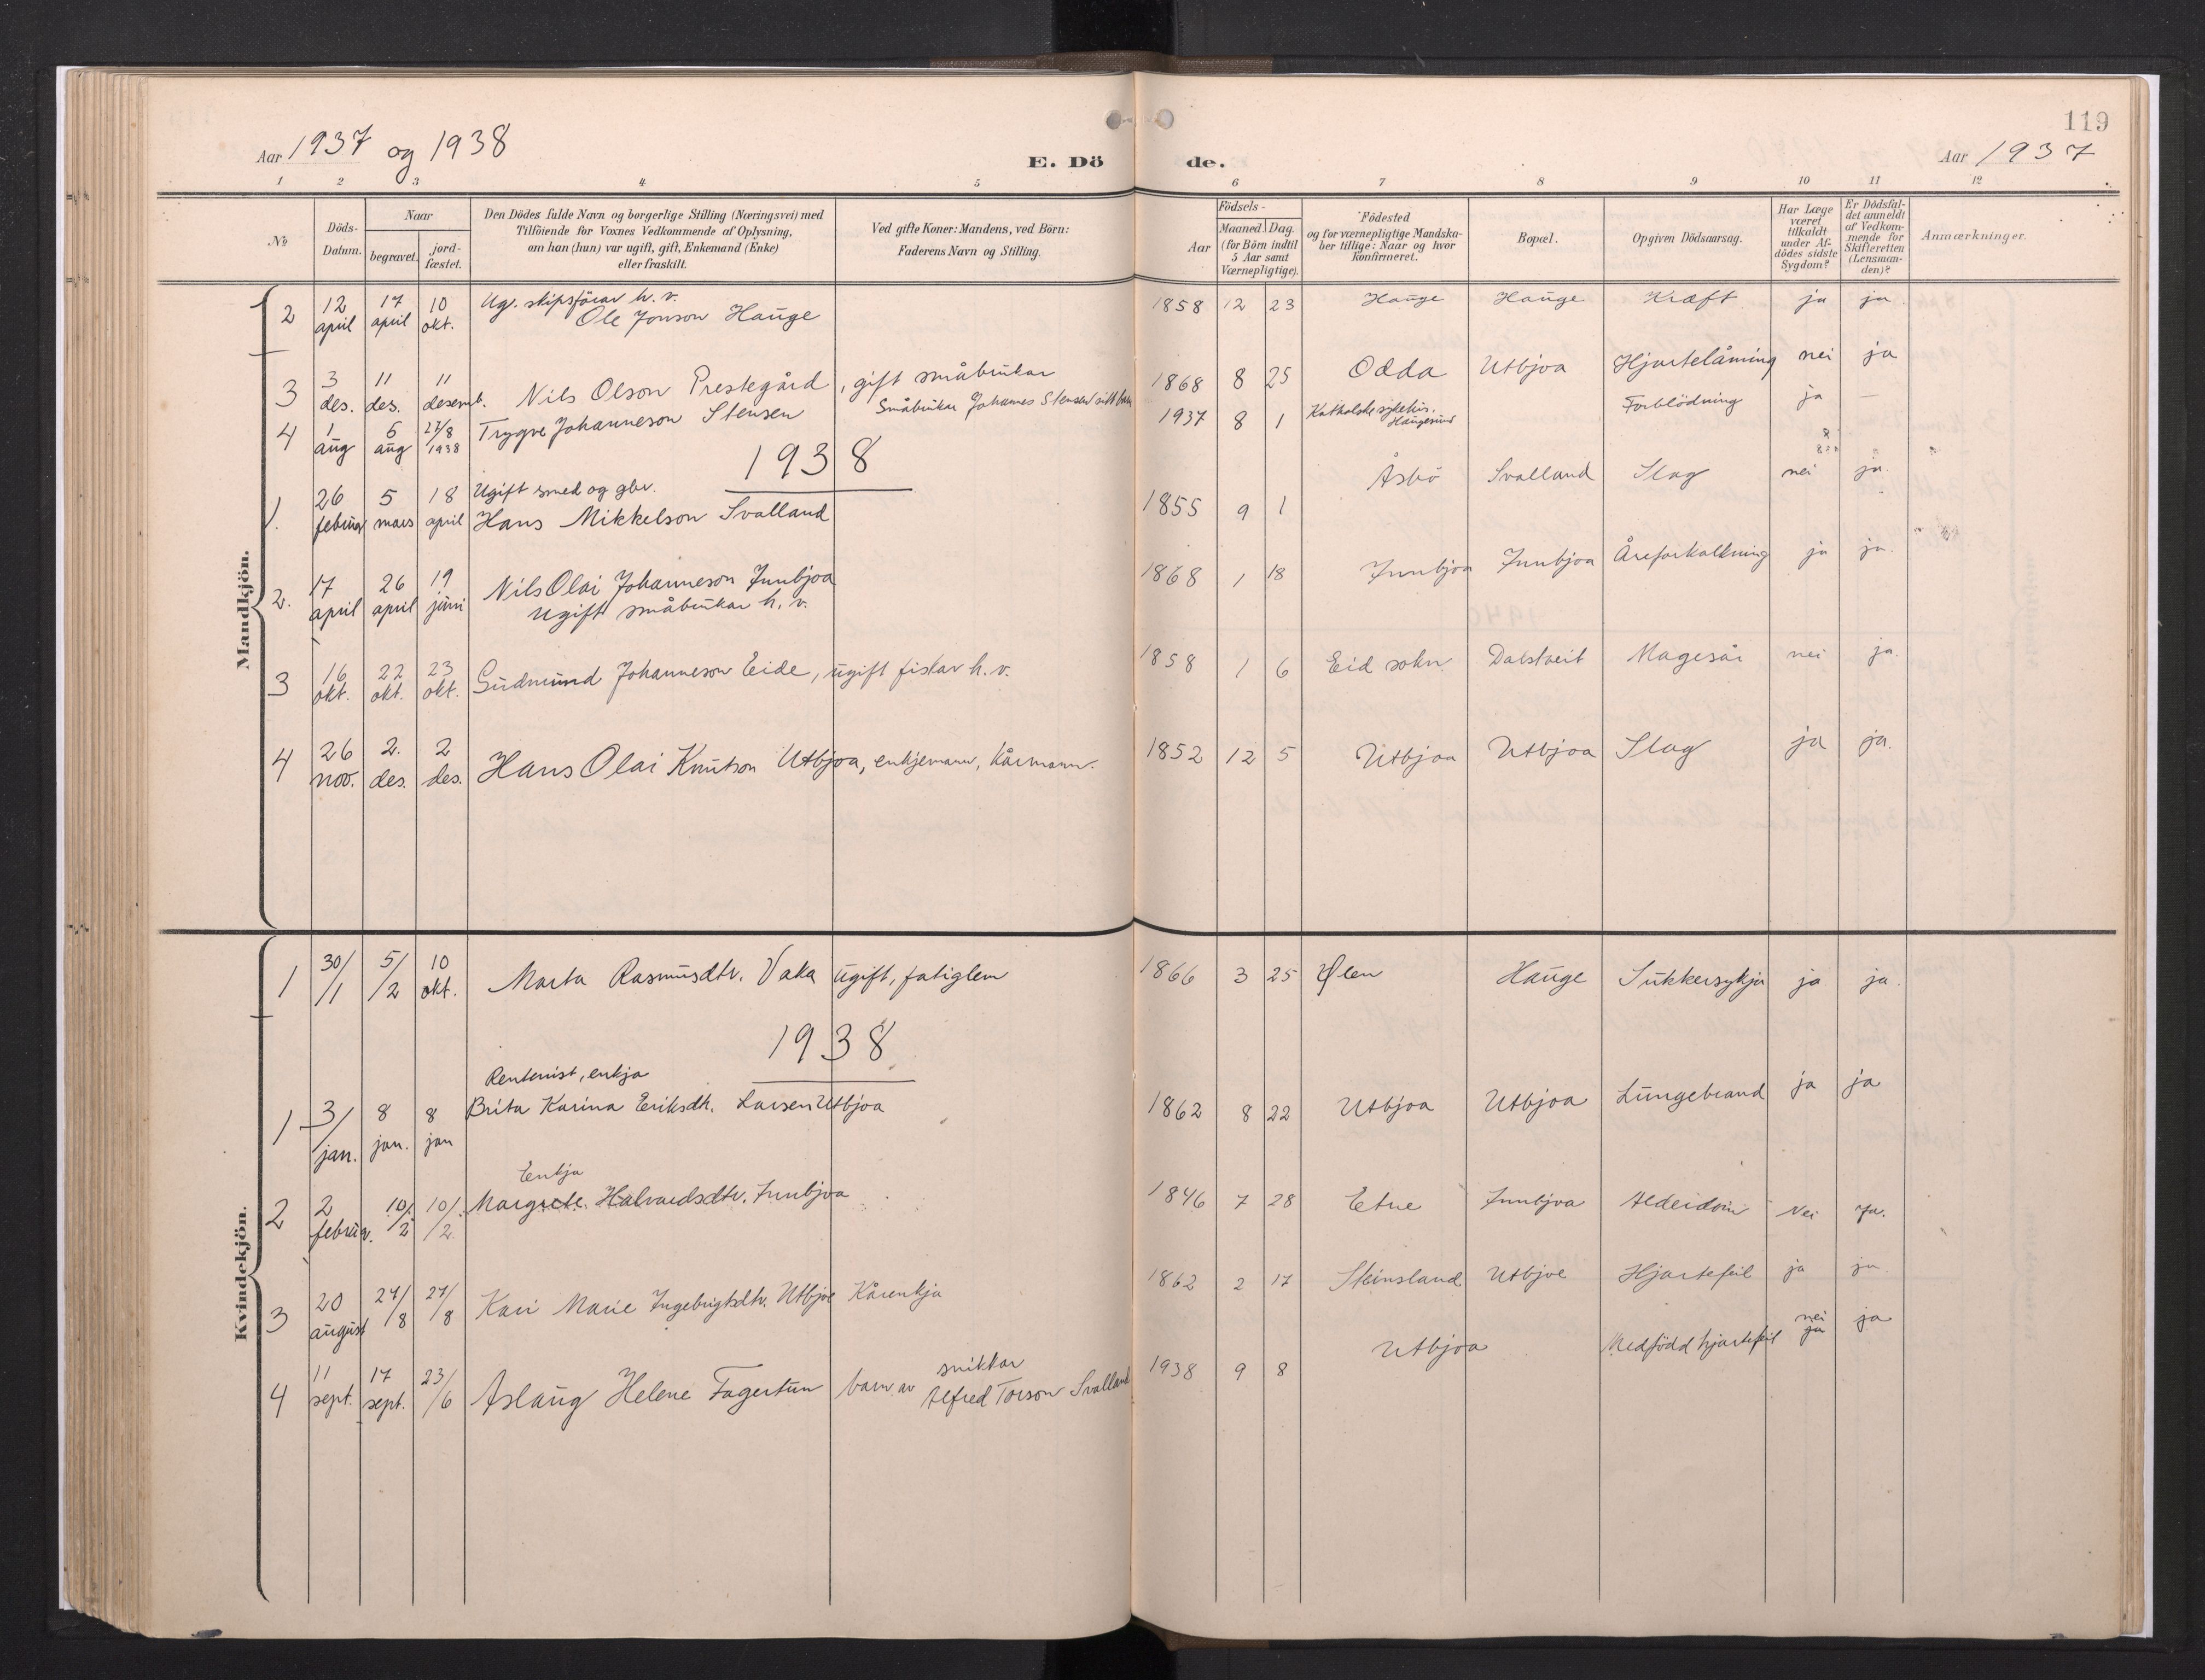 119
Aar 1937 og 1938
E. Döde.
Aar 1937
1 2 3 4 5 6 7 8 9 10 11 12
No
Döds-Datum.
Naar
begravet.
jordfæstet.
Den Dödes fulde Navn og borgerlige Stilling (Næringsvei) med
Tilföiende for Voxnes Vedkommende af Oplysning,
om han (hun) var ugift, gift, Enkemand (Enke)
eller fraskilt.
Ved gifte Koner: Mandens, ved Börn:
Faderens Navn og Stilling.
Födsels-
Aar
Maaned. Dag.
(for Börn indtil
5 Aar samt
Værnepligtige).
Födested
og for værnepligtige Mandska-
ber tillige: Naar og hvor
Konfirmeret.
Bopæl.
Opgiven Dödsaarsag.
Har Læge
været
tilkaldt
under Af-
dödes sidste
Sygdom?
Er Dödsfal-
det anmeldt
af Vedkom-
mende for
Skifteretten
(Lensman-
den)?
Anmærkninger.
Mandkjön.
2 12 april 17 april 10 okt. Ug. skipsförar h.v.
Ole Jonson Hauge 1858 12 23 Hauge Hauge Kræft ja ja
3 3 des. 11 des. 11 desemb. Nils Olson Prestegård, gift småbrukar 1868 8 25 Odda Utbjoa Hjartelåming nei ja
4 1 aug 6 aug 22/8 1938 Trygve Johanneson Stensen Småbrukar Johannes Stensen sitt barn 1937 8 1 Katholske sykehus, Haugesund Forblödning ja —
1938
1. 26 februar 5 mars 18 april Ugift smed og gbr.
Hans Mikkelson Svalland 1855 9 1 Åsbö Svalland Slag nei ja
2. 17 april 26 april 19 juni Nils Olai Johanneson Innbjoa
ugift småbrukar h.v. 1868 1 18 Innbjoa Innbjoa Åreforkalkning ja ja.
3 16 okt. 22 okt. 23 okt. Gudmund Johanneson Eide, ugift fiskar h.v. 1858 1 6 Eid sokn Dalstveit Magesår nei ja.
4 26 nov. 2. des. 2 des. Hans Olai Knutson Utbjoa, enkjemann, kårmann. 1852 12 5 Utbjoa Utbjoa Slag ja ja.
Kvindekjön.
1 30/1 5/2 10 okt. Marta Rasmusdtr. Vaka ugift, fatiglem 1866 3 25 Ølen Hauge Sukkersykja ja ja.
1938
Rentenist, enkja
1 3/jan. 8 jan. 8 jan Brita Karina Eriksdtr. Larsen Utbjoa 1862 8 22 Utbjoa Utbjoa Lungebrand ja ja
Enkja
2 2 februar. 10/2 10/2 Margrete Halvardsdtr. Innbjoa 1846 7 28 Etne Innbjoa Alderdom Nei Ja.
3 20 august 27/8 27/8 Kari Marie Ingebrigtsdtr. Utbjoe Kårenkja 1862 2 17 Steinsland Utbjoe Hjartefeil ja ja.
4 11 sept. 17 sept. 23/6 Aslaug Helene Fagertun barn av snikkar
Alfred Torson Svalland 1938 9 8 Utbjoa Medfödd hjartefeil nei ja ja